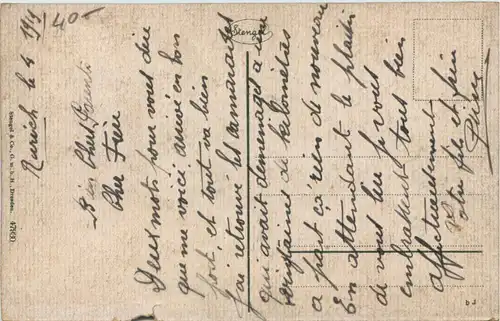 40-
Zurich le 4 1919
Bien Chers Parents
Cher Frère
Deux mots pour vous dire
que me voici arrivé en bon
port, et tout va bien
J'ai retrouvé les camarades
qui avait demenagés a une
vingtaines de kilomètres
a part ça rien de nouveau
En attendant le plaisir
de vous lire je vous
embrasse tous bien
affectueusement
Votre fils et frère
Stengel
Stengel & Co., G. m. b. H., Dresden.